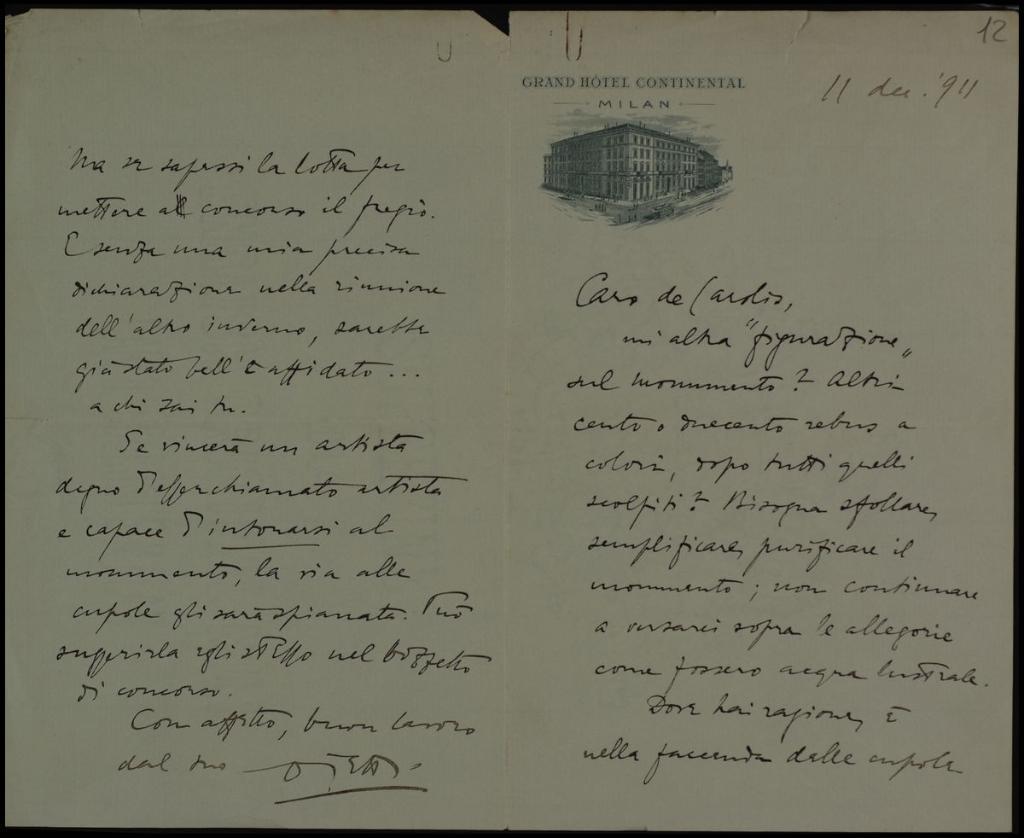 12
GRAND HÔTEL CONTINENTAL
MILAN
11 dec. '911
Caro de Carolis,
un'altra "figurazione"
sul monumento? Altri
cento o duecento rebus a
colori, dopo tutti quelli
scolpiti? Bisogna sfollare,
semplificare, purificare il
monumento; non continuare
a versarci sopra le allegorie
come fossero acqua lustrale.
Dove hai ragione, è
nella faccenda delle cupole
Ma se sapessi la lotta per
mettere al concorso il fregio.
E senza una mia precisa
dichiarazione nella riunione
dell'altro inverno, sarebbe
già stato bell'e affidato...
a chi sai tu.
Se vincerà un artista
degno d'esser chiamato artista
e capace d'intonarsi al
monumento, la via alle
cupole gli sarà spianata. Può
suggerirla egli stesso nel bozzetto
di concorso.
Con affetto, buon lavoro
dal tuo